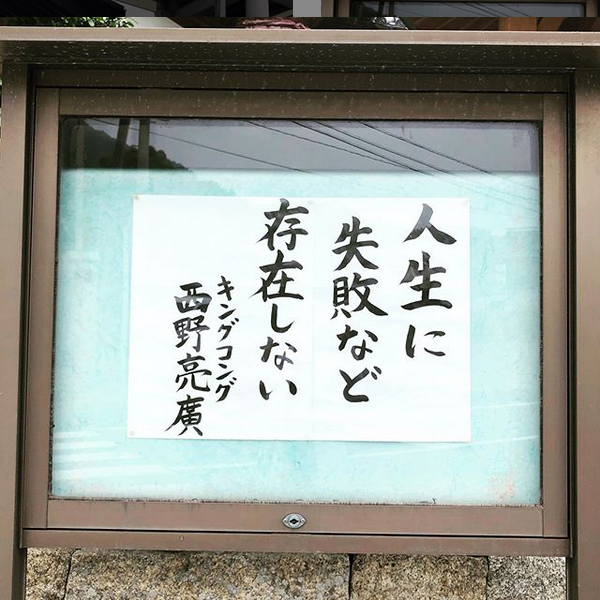 人生に
失敗など
存在しない
キングコング
西野亮廣